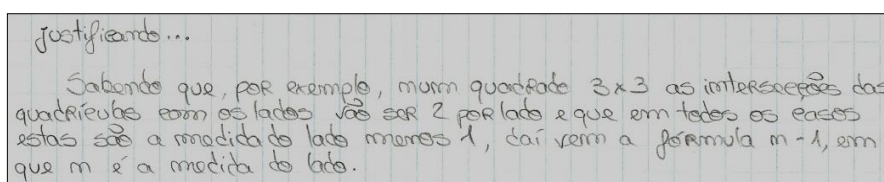 Justificando...
Sabendo que, por exemplo, num quadrado 3x3 as intersecções das
quadrículas com os lados vão ser 2 por lado e que em todos os casos
estas são a medida do lado menos 1, daí vem a fórmula n-1, em
que n é a medida do lado.